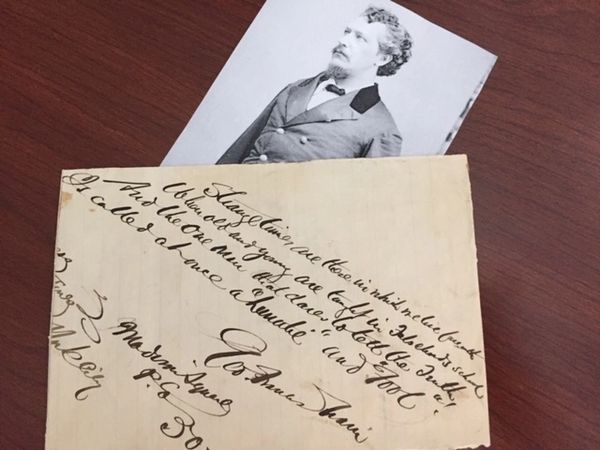 Strange times are these in which we live forsooth
When old and young are taught in Falsehoods school
And the one man that dares to tell the truth
Is called at once a "Lunatic" and "Fool"!
Geo Francis Train
Madison Square